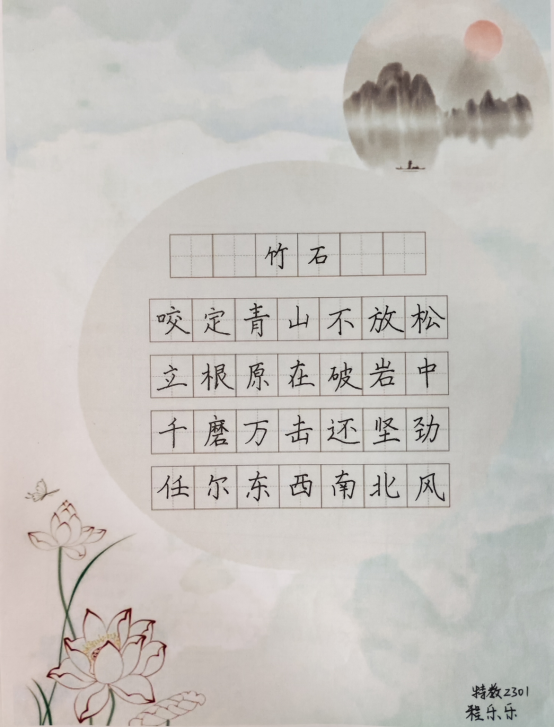 竹石
咬定青山不放松
立根原在破岩中
千磨万击还坚劲
任尔东西南北风
特教2301
程乐乐